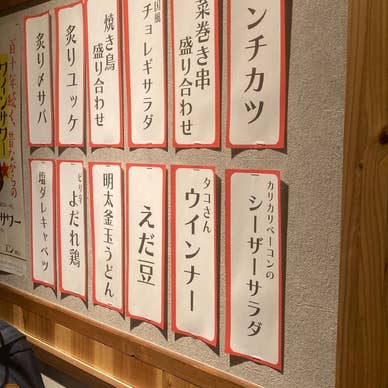 ンチカツ
菜巻き串
盛り合わせ
国風
チョレギサラダ
焼き鳥
盛り合わせ
炙りユッケ
炙り〆サバ
カリカリベーコンの
シーザーサラダ
タコさん
ウインナー
えだ豆
明太釜玉うどん
ピリ辛
よだれ鶏
塩ダレキャベツ
ワインサワー
サワー